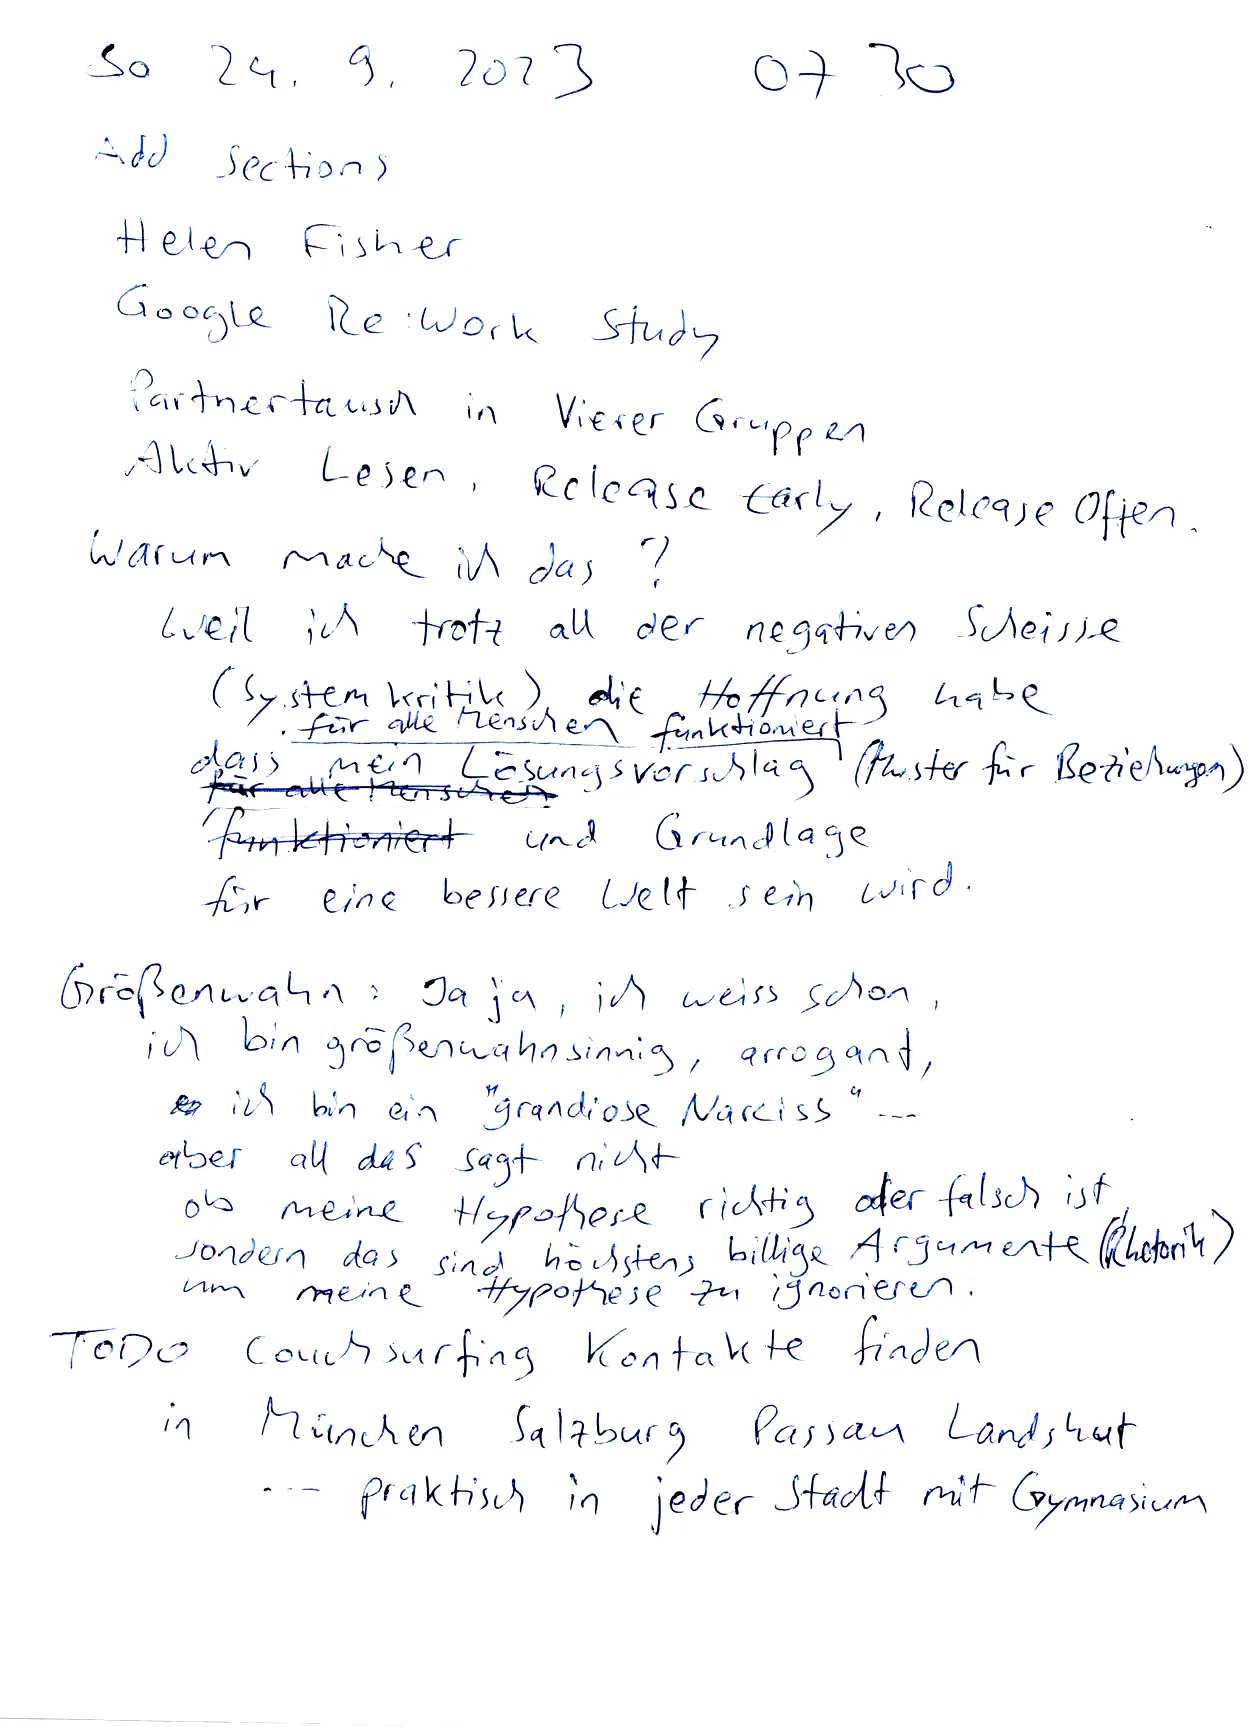 So 24. 9. 2023 07 30
Add Sections
Helen Fisher
Google Re:Work Study
Partnertausch in Vierer Gruppen
Aktiv Lesen, Release Early, Release Often.
Warum mache ich das ?
Weil ich trotz all der negativen Scheisse
(Systemkritik) die Hoffnung habe
für alle Menschen funktioniert
dass mein Lösungsvorschlag (Muster für Beziehungen)
für alle Menschen
funktioniert und Grundlage
für eine bessere Welt sein wird.
Größenwahn: Ja ja, ich weiss schon,
ich bin größenwahnsinnig, arrogant,
ich bin ein "grandiose Narciss" ...
aber all das sagt nicht
ob meine Hypothese richtig oder falsch ist,
sondern das sind höchstens billige Argumente (Rhetorik)
um meine Hypothese zu ignorieren.
TODO Couchsurfing Kontakte finden
in München Salzburg Passau Landshut
... praktisch in jeder Stadt mit Gymnasium